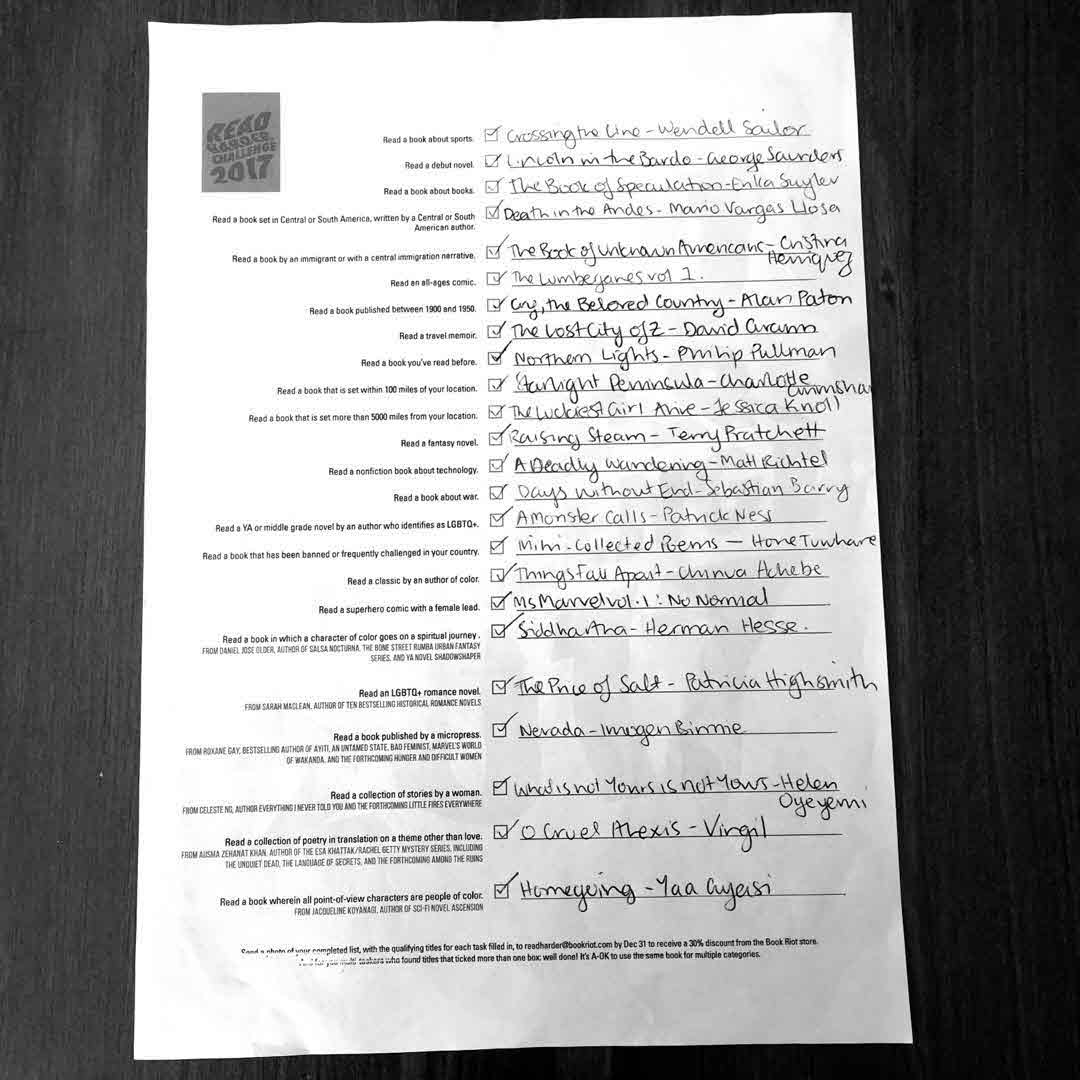 READ
HARDER
CHALLENGE
2017
Read a book about sports. Crossing the Line - Wendell Sailor
Read a debut novel. Lincoln in the Bardo - George Saunders
Read a book about books. The Book of Speculation - Erika Swyler
Read a book set in Central or South America, written by a Central or South
American author. Death in the Andes - Mario Vargas Llosa
Read a book by an immigrant or with a central immigration narrative. The Book of Unknown Americans - Cristina
Henriquez
Read an all-ages comic. The Lumberjanes vol 1.
Read a book published between 1900 and 1950. Cry, the Beloved Country - Alan Paton
Read a travel memoir. The Lost City of Z - David Grann
Read a book you've read before. Northern Lights - Philip Pullman
Read a book that is set within 100 miles of your location. Starlight Peninsula - Charlotte
Grimshaw
Read a book that is set more than 5000 miles from your location. The Luckiest Girl Alive - Jessica Knoll
Read a fantasy novel. Raising Steam - Terry Pratchett
Read a nonfiction book about technology. A Deadly Wandering - Matt Richtel
Read a book about war. Days Without End - Sebastian Barry
Read a YA or middle grade novel by an author who identifies as LGBTQ+. A Monster Calls - Patrick Ness
Read a book that has been banned or frequently challenged in your country. Mihi - Collected Poems - Hone Tuwhare
Read a classic by an author of color. Things Fall Apart - Chinua Achebe
Read a superhero comic with a female lead. Ms Marvel vol. 1: No Normal
Read a book in which a character of color goes on a spiritual journey. Siddhartha - Herman Hesse.
FROM DANIEL JOSE OLDER, AUTHOR OF SALSA NOCTURNA, THE BONE STREET RUMBA URBAN FANTASY
SERIES, AND YA NOVEL SHADOWSHAPER
Read an LGBTQ+ romance novel. The Price of Salt - Patricia Highsmith
FROM SARAH MACLEAN, AUTHOR OF TEN BESTSELLING HISTORICAL ROMANCE NOVELS
Read a book published by a micropress. Nevada - Imogen Binnie
FROM ROXANE GAY, BESTSELLING AUTHOR OF AYITI, AN UNTAMED STATE, BAD FEMINIST, MARVEL'S WORLD
OF WAKANDA, AND THE FORTHCOMING HUNGER AND DIFFICULT WOMEN
Read a collection of stories by a woman. What is not Yours is not Yours - Helen
Oyeyemi
FROM CELESTE NG, AUTHOR EVERYTHING I NEVER TOLD YOU AND THE FORTHCOMING LITTLE FIRES EVERYWHERE
Read a collection of poetry in translation on a theme other than love. O Cruel Alexis - Virgil
FROM AUSMA ZEHANAT KHAN, AUTHOR OF THE ESA KHATTAK/RACHEL GETTY MYSTERY SERIES, INCLUDING
THE UNQUIET DEAD, THE LANGUAGE OF SECRETS, AND THE FORTHCOMING AMONG THE RUINS
Read a book wherein all point-of-view characters are people of color. Homegoing - Yaa Gyasi
FROM JACQUELINE KOYANAGI, AUTHOR OF SCI-FI NOVEL ASCENSION
Send a photo of your completed list, with the qualifying titles for each task filled in, to readharder@bookriot.com by Dec 31 to receive a 30% discount from the Book Riot store.
And for you multi-taskers who found titles that ticked more than one box: well done! It's A-OK to use the same book for multiple categories.